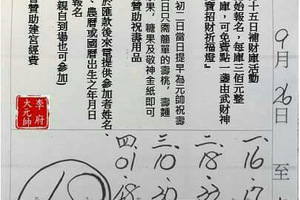 十五日補財庫活動
始報名，每庫三佰元整
庫，可免費點一盞由武財神
寶招財祈福燈」
初二日當日提早為元帥祝壽
日只需簡單的壽桃，壽麵
果，糖果及敬神金紙即可
贊助祝壽用品
於匯款後來電提供參加者姓名
、農曆或國曆出生之年月日
報名
親自到場也可參加)
贊助建宮經費
李府
大元帥
9月26日至
一、16、17
二、18、33
三、10、20
四、01、18